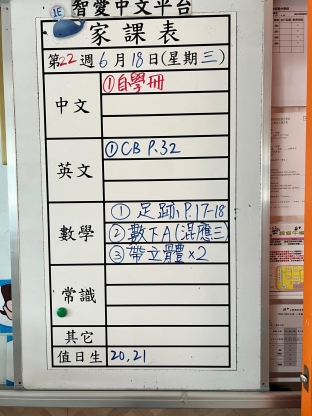 1E 智愛中文平台
家課表
第22週6月18日(星期三)
中文 ①自學冊
英文 ①CB P.32
數學 ①足跡,P.17-18
②數下A(混應三)
③帶立體×2
常識
其它
值日生 20,21